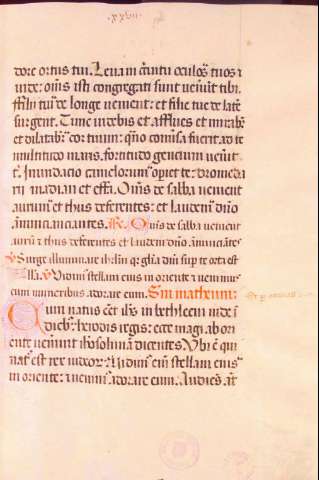 xxviij.
dore ortus tui. Leua in circuitu oculos tuos ⁊
uide: om̄s isti congregati sunt uenerūt tibi.
filij tui de longe uenient: et filie tue de late
surgent. Tunc uidebis et afflues et mirab̄
et dilatabit̄ cor tuum: qn̄o conuersa fuerit ad te
multitudo maris. fortitudo gencium uenerit
t. Inundacio camelorum opiet te: dromeda
rij madian et effa. Om̄s de sabba uenient
aurum et thus deferentes: et laudem dn̄o
annunciantes. R. Om̄s de sabba uenient
aurū ⁊ thus deferentes et laudem dn̄o annūciātes
℣ Surge illuminare ihrl̄m qr gl̄ia dn̄i sup te orta est
Alla. ℣ Uidim̄ stellam eius in oriente ⁊ uenimus
cum muneribus adorare eum. Sm matheum:
Cum natus eēt ih̄s in bethleem iude i
dieb̄ herodis regis: ecce magi ab ori
ente uenerūt iherosolimā dicentes. Ubi ē qui
nat̄ est rex iudeor̄: Uidim̄ eni stellam eius
in oriente: ⁊ uenim̄ adorare eum. Audiēs at̄